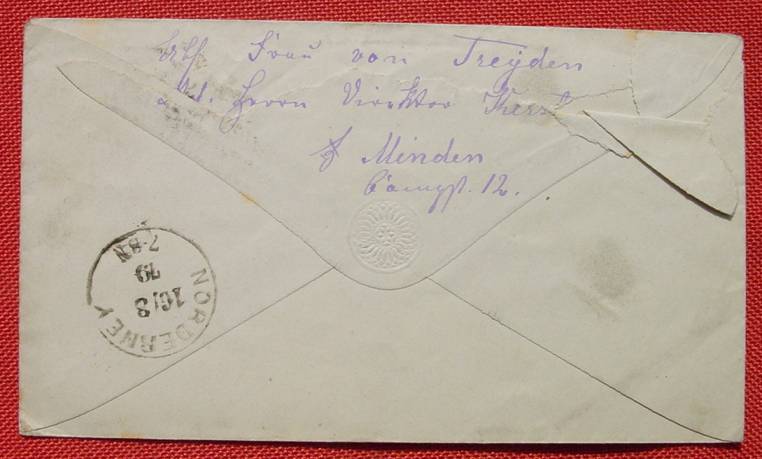 Abs. Frau von Treyden
Herrn Direktor
Minden
12.
NORDERNEY
16/8
79
7-8N